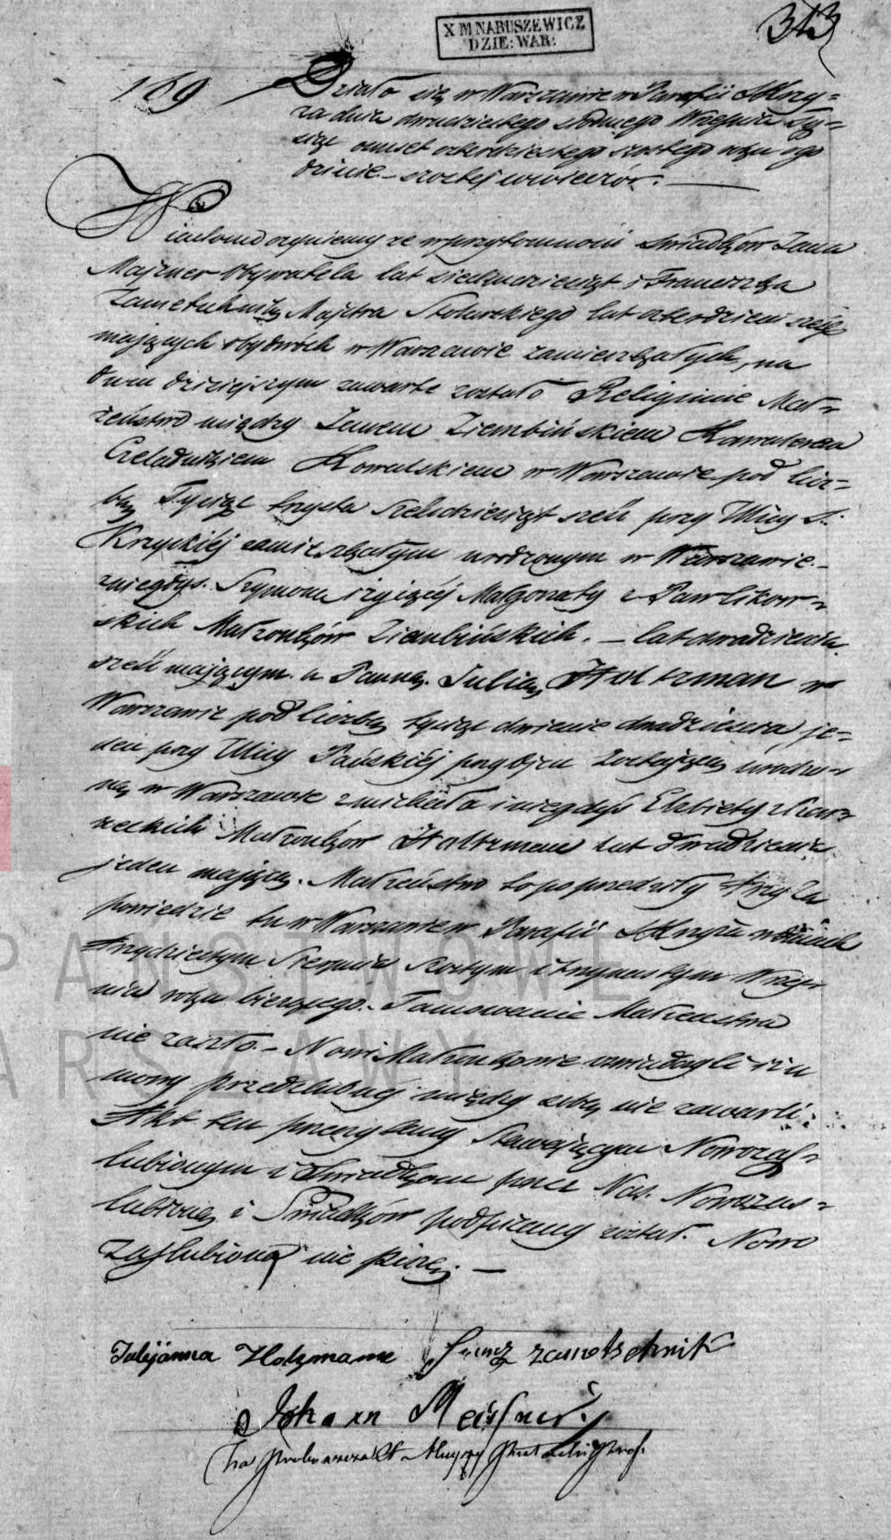 X M NARUSZEWICZ
DZIE: WAR:
343
169
Działo się w Warszawie w Parafii S Krzy=
ża dnia dwudziestego siódmego Września Ty=
siąc ośmset czterdziestego szóstego roku o go
dzinie szóstej wieczor. —
Wiadomo czynimy że w przytomności świadków Jana
Majzner Obywatela lat siedmdziesiąt i Franciszka
Zametschnik Majstra Stolarskiego lat czterdzieści sześć
mających obydwóch w Warszawie zamieszkałych, na
dniu dzisiejszym zawarte zostało Religijnie Mał=
żeństwo między Janem Ziembińskiem Kawalerem
Czeladnikiem Kowalskiem w Warszawie pod licz=
bą Tysiąc trzysta sześćdziesiąt sześć przy Ulicy S.
Krzyskiéj zamieszkałym urodzonym w Warszawie
z niegdyś Szymona i żyjącéj Małgorzaty z Pawlikow=
skich Małżonków Ziembińskich. — lat dwadzieścia
sześć mającym. a Panną Julią Holtzman w
Warszawie pod liczbą tysiąc dwieście dwadzieścia je=
den przy Ulicy Pańskiéj przy Ojcu zostającą urodzo=
ną w Warszawie z Michała i niegdyś Elżbiety z
Małżonków Holtzman lat dwadzieścia
jeden mającą. Małżeństwo to poprzedziły trzy Za
powiedzie tu w Warszawie w Parafii S Krzyża w dniach
trzydziestym Sierpnia szóstym i trzynastym Wrze=
śnia roku bieżącego. Tamowanie Małżeństwa
nie zaszło. — Nowi Małżonkowie oświadczyli iż u
mowy przedślubnéj między sobą nie zawarli.
Akt ten przeczytany Stawającym Nowozaś=
lubionym i Świadkom przez Nas. Nowozaś=
lubioną i Świadków podpisany został. Nowo
zaślubiony nie pisze. —
Julijanna Holzmann Franz Zametschnik
Johann Meisner
Za Proboszcza